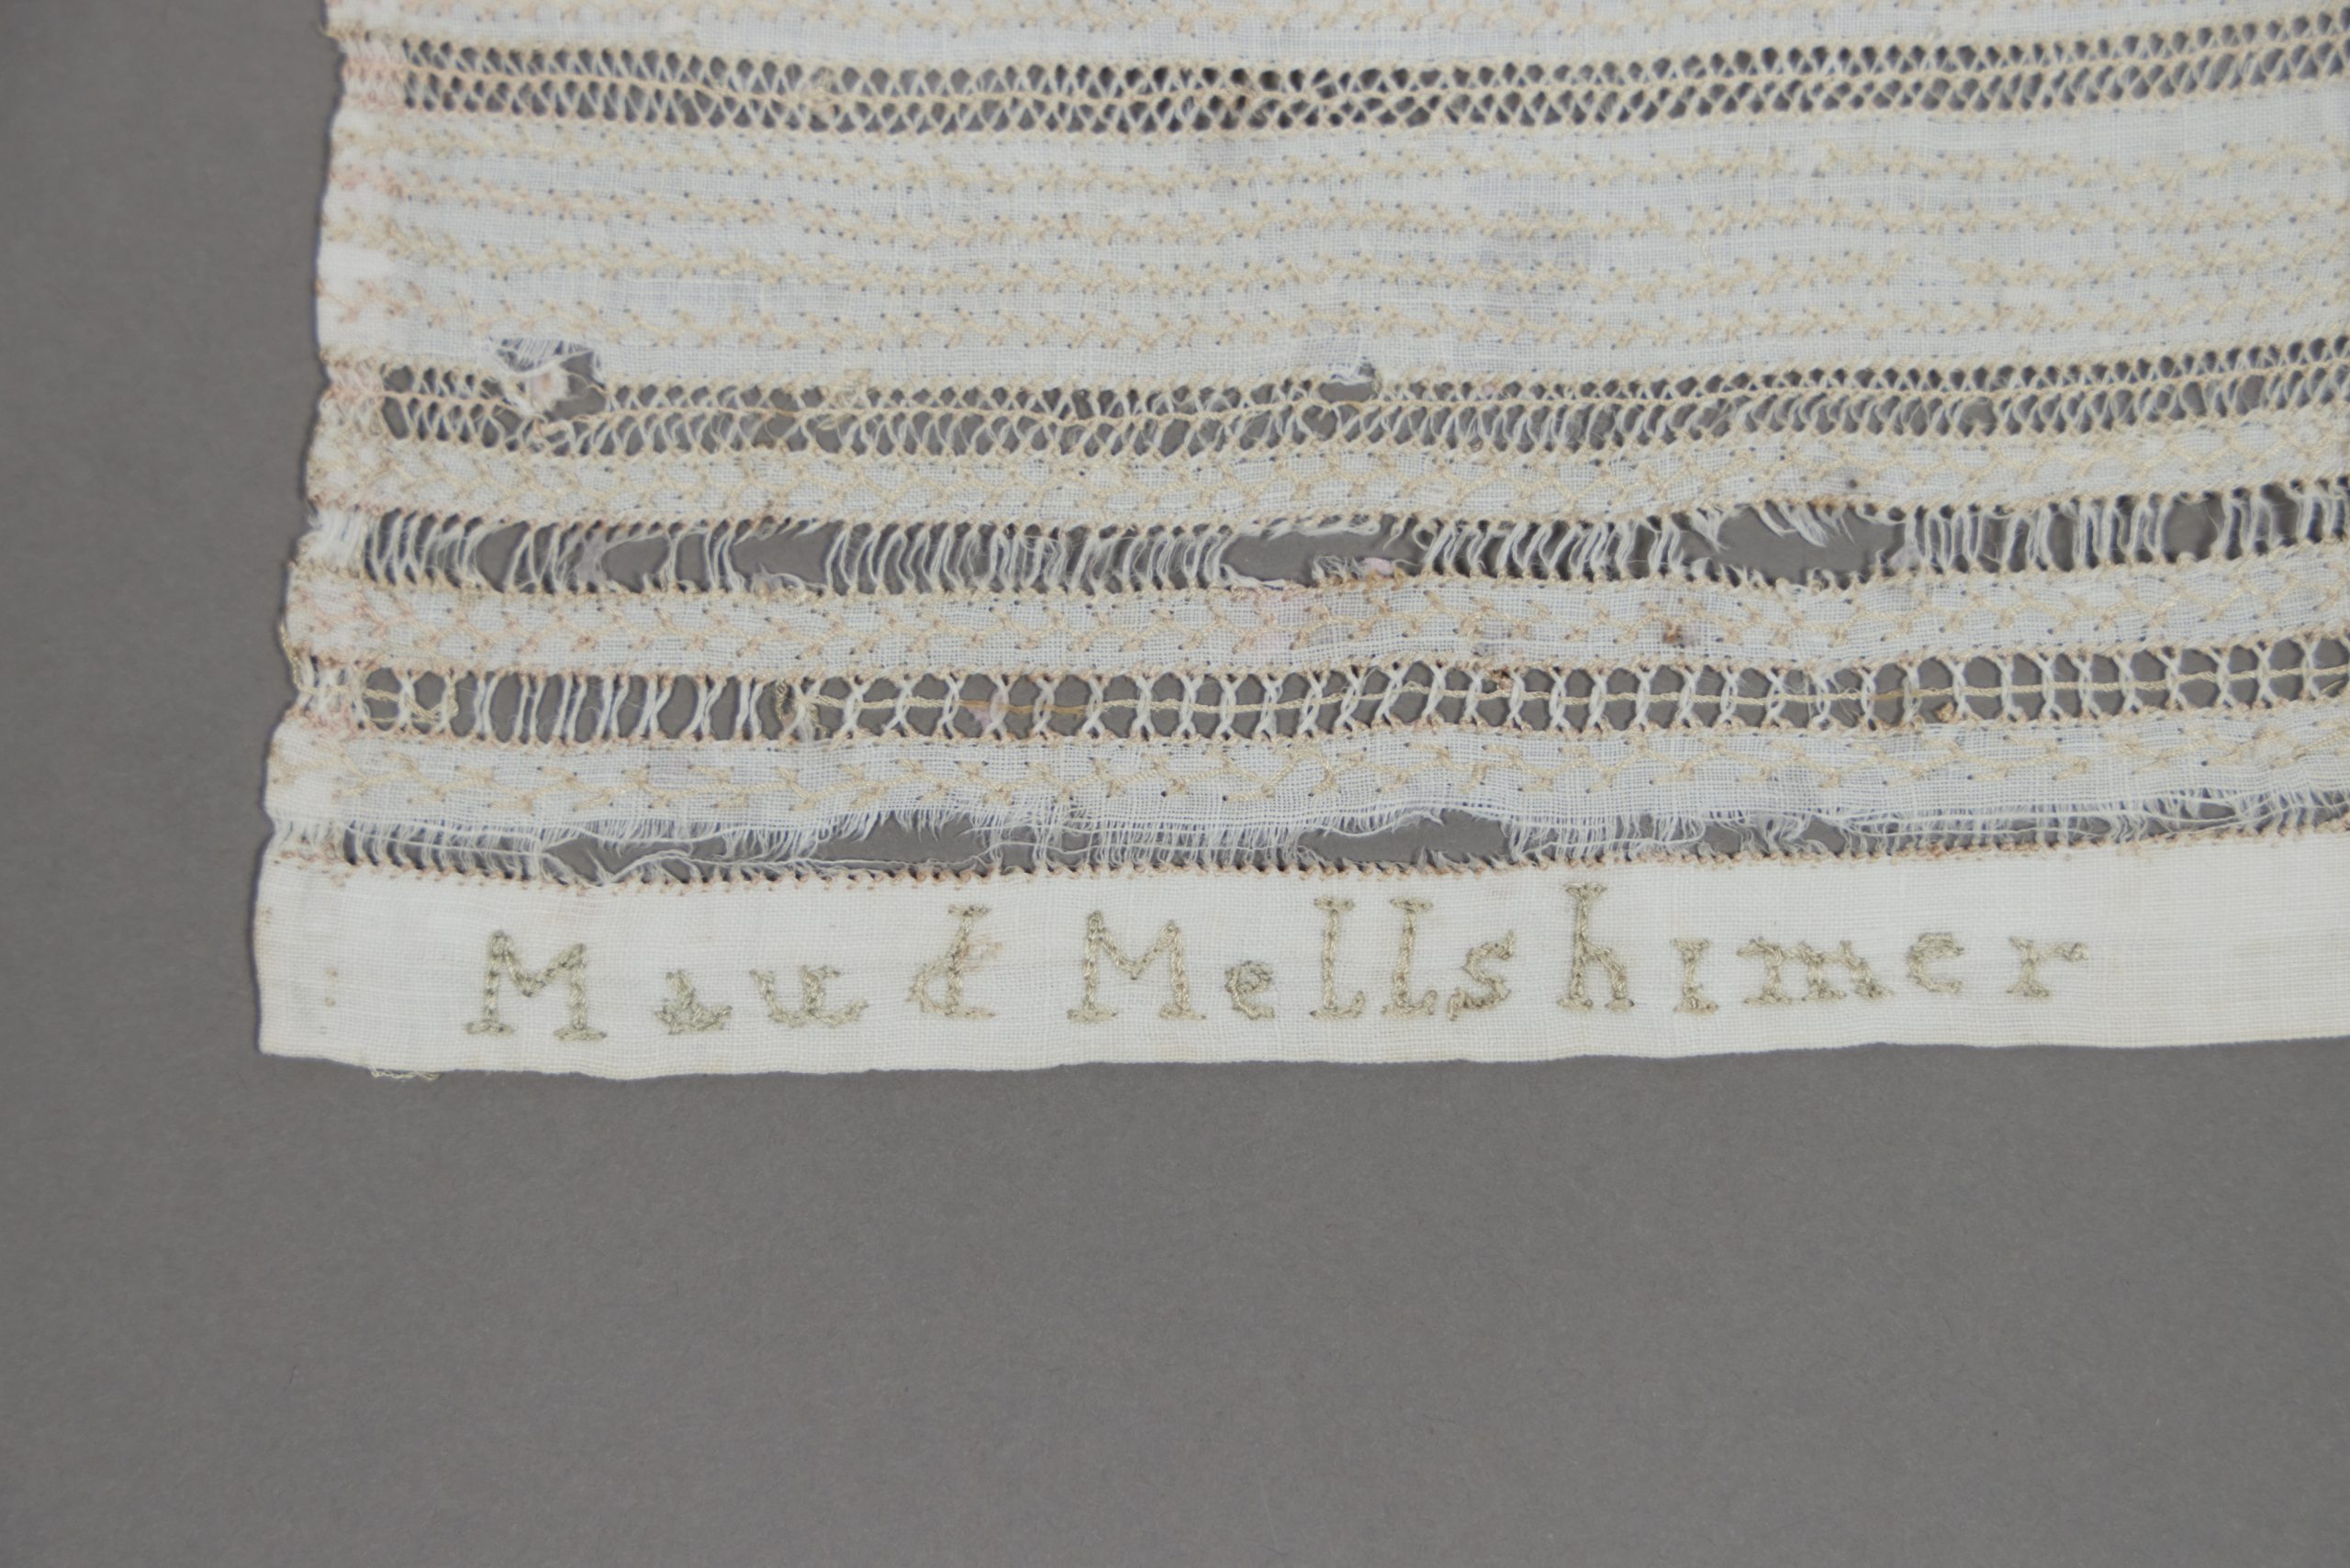 Maud Mellshimer